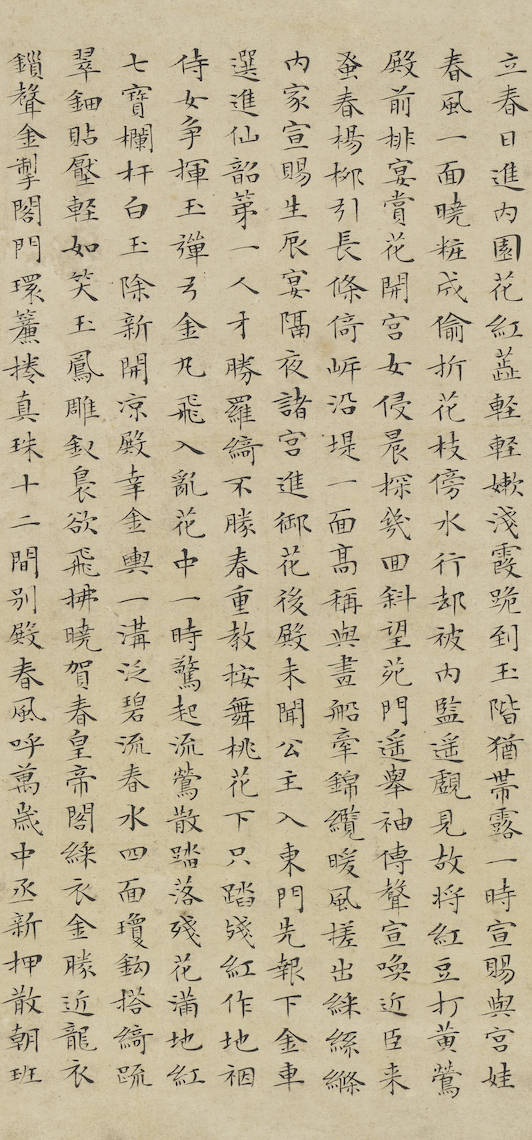 立春日進内園花紅蕋軽軽嫰淺霞跪到玉階猶帶露一時宣賜與宮娃
春風一面曉粧成偷折花枝傍水行却被内監遥覷見故将紅豆打黄鶯
殿前排宴賞花開宮女侵晨探幾回斜望苑門遥舉袖傳聲宣喚近臣来
蚤春楊柳引長條倚岍沿堤一面髙稱與畫船牽錦纜暖風搓出綵絲縧
内家宣賜生辰宴隔夜諸宮進御花後殿未聞公主入東門先報下金車
選進仙韶第一人才勝羅綺不勝春重教按舞桃花下只踏殘紅作地裀
侍女争揮玉彈弓金丸飛入亂花中一時驚起流鶯散踏落殘花滿地紅
七寶欄杆白玉除新開凉殿幸金輿一溝泛碧流春水四面瓊鈎搭綺踈
翠鈿貼壓軽如笑玉鳳雕釵裊欲飛拂曉賀春皇帝閤綵衣金勝近龍衣
鎖聲金掣閤門環簾捲真珠十二間别殿春風呼萬歲中丞新押散朝班